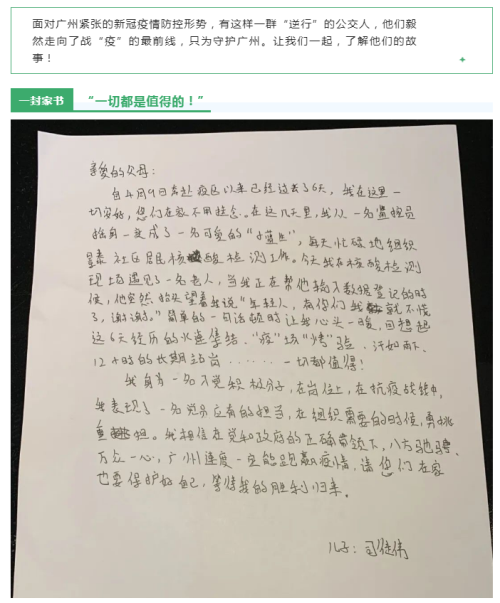 面对广州紧张的新冠疫情防控形势，有这样一群“逆行”的公交人，他们毅
然走向了战“疫”的最前线，只为守护广州。让我们一起，了解他们的故
事！
一封家书
“一切都是值得的！”
亲爱的父母：
自4月9日奔赴疫区以来已经过去了6天，我在这里一
切安好，您们在家不用挂念。在这几天里，我从一名
摇身一变成了一名可爱的“小蓝”，每天忙碌地组织
社区居民核酸检测工作。今天我在核酸检测
现场遇见了一名老人，当我正在帮他输入数据登记的时
候，他突然抬头望着我说“年轻人，有你们我就不慌
了，谢谢。”简单的一句话顿时让我心头一暖，回想起
这6天经历的水，“疫”场“情”验，汗如雨下、
12小时的长期站岗……一切都值得！
我身为一名入党积极分子，在岗位上，在抗疫战线中，
我表现了一名党员应有的担当，在组织需要的时候，勇挑
重担。我相信在党和政府的正确带领下，八方驰骋、
万众一心，广州速度一定能跑赢疫情，请您们在家
也要保护好自己，等待我的胜利归来。
儿子：司继伟